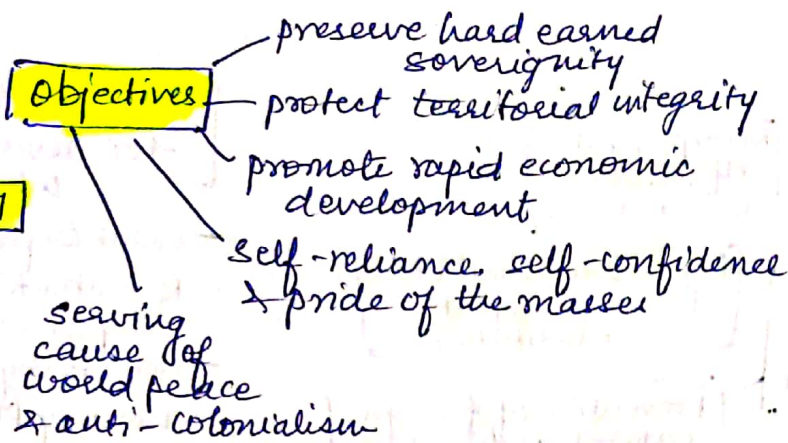 preserve hard earned
soverignity
Objectives
protect territorial integrity
promote rapid economic
development
self-reliance, self-confidence
& pride of the masses
serving
cause of
world peace
& anti-colonialism